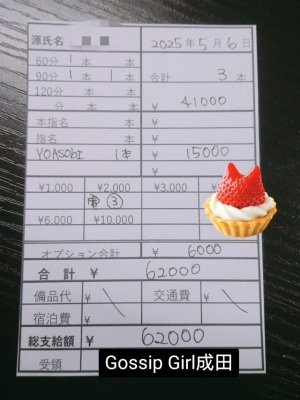 源氏名 2025年5月6日
60分 1本 本
90分 1本 1本 合計 3本
120分 本 本
分 本 本 ¥ 41000
本指名 本 ¥
指名 本 ¥
YOASOBI 1本 ¥ 15000
¥
¥1,000 ¥2,000 ¥3,000
電③
¥6,000 ¥10,000
オプション合計 ¥ 6000
合計 ¥ 62000
備品代 ¥ 交通費 ¥
宿泊費 ¥
総支給額 ¥ 62000
受領
Gossip Girl成田